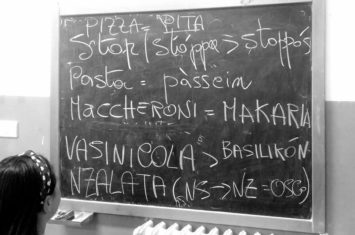 PIZZA = PITA
Stop / Stóppa > stoppós
Pasta = pàssein
MACCHERONI = MAKARIA
VASINICOLA > BASILIKÓN
NZALATA (NS → NZ = OSCO)